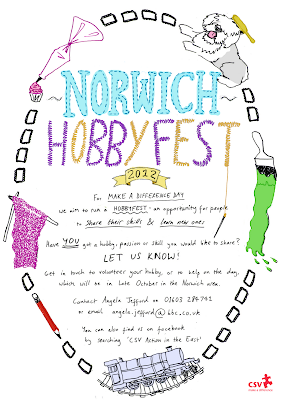 NORWICH
HOBBYFEST
2012
For MAKE A DIFFERENCE DAY
we aim to run a HOBBYFEST - an opportunity for people
to share their skills & learn new ones
Have YOU got a hobby, passion or skill you would like to share?
LET US KNOW!
Get in touch to volunteer your hobby, or to help on the day,
which will be in late October in the Norwich area.
Contact Angela Jefford on 01603
or email angela.jefford@bbc.co.uk
You can also find us on facebook
by searching 'CSV Action in the East'
CSV